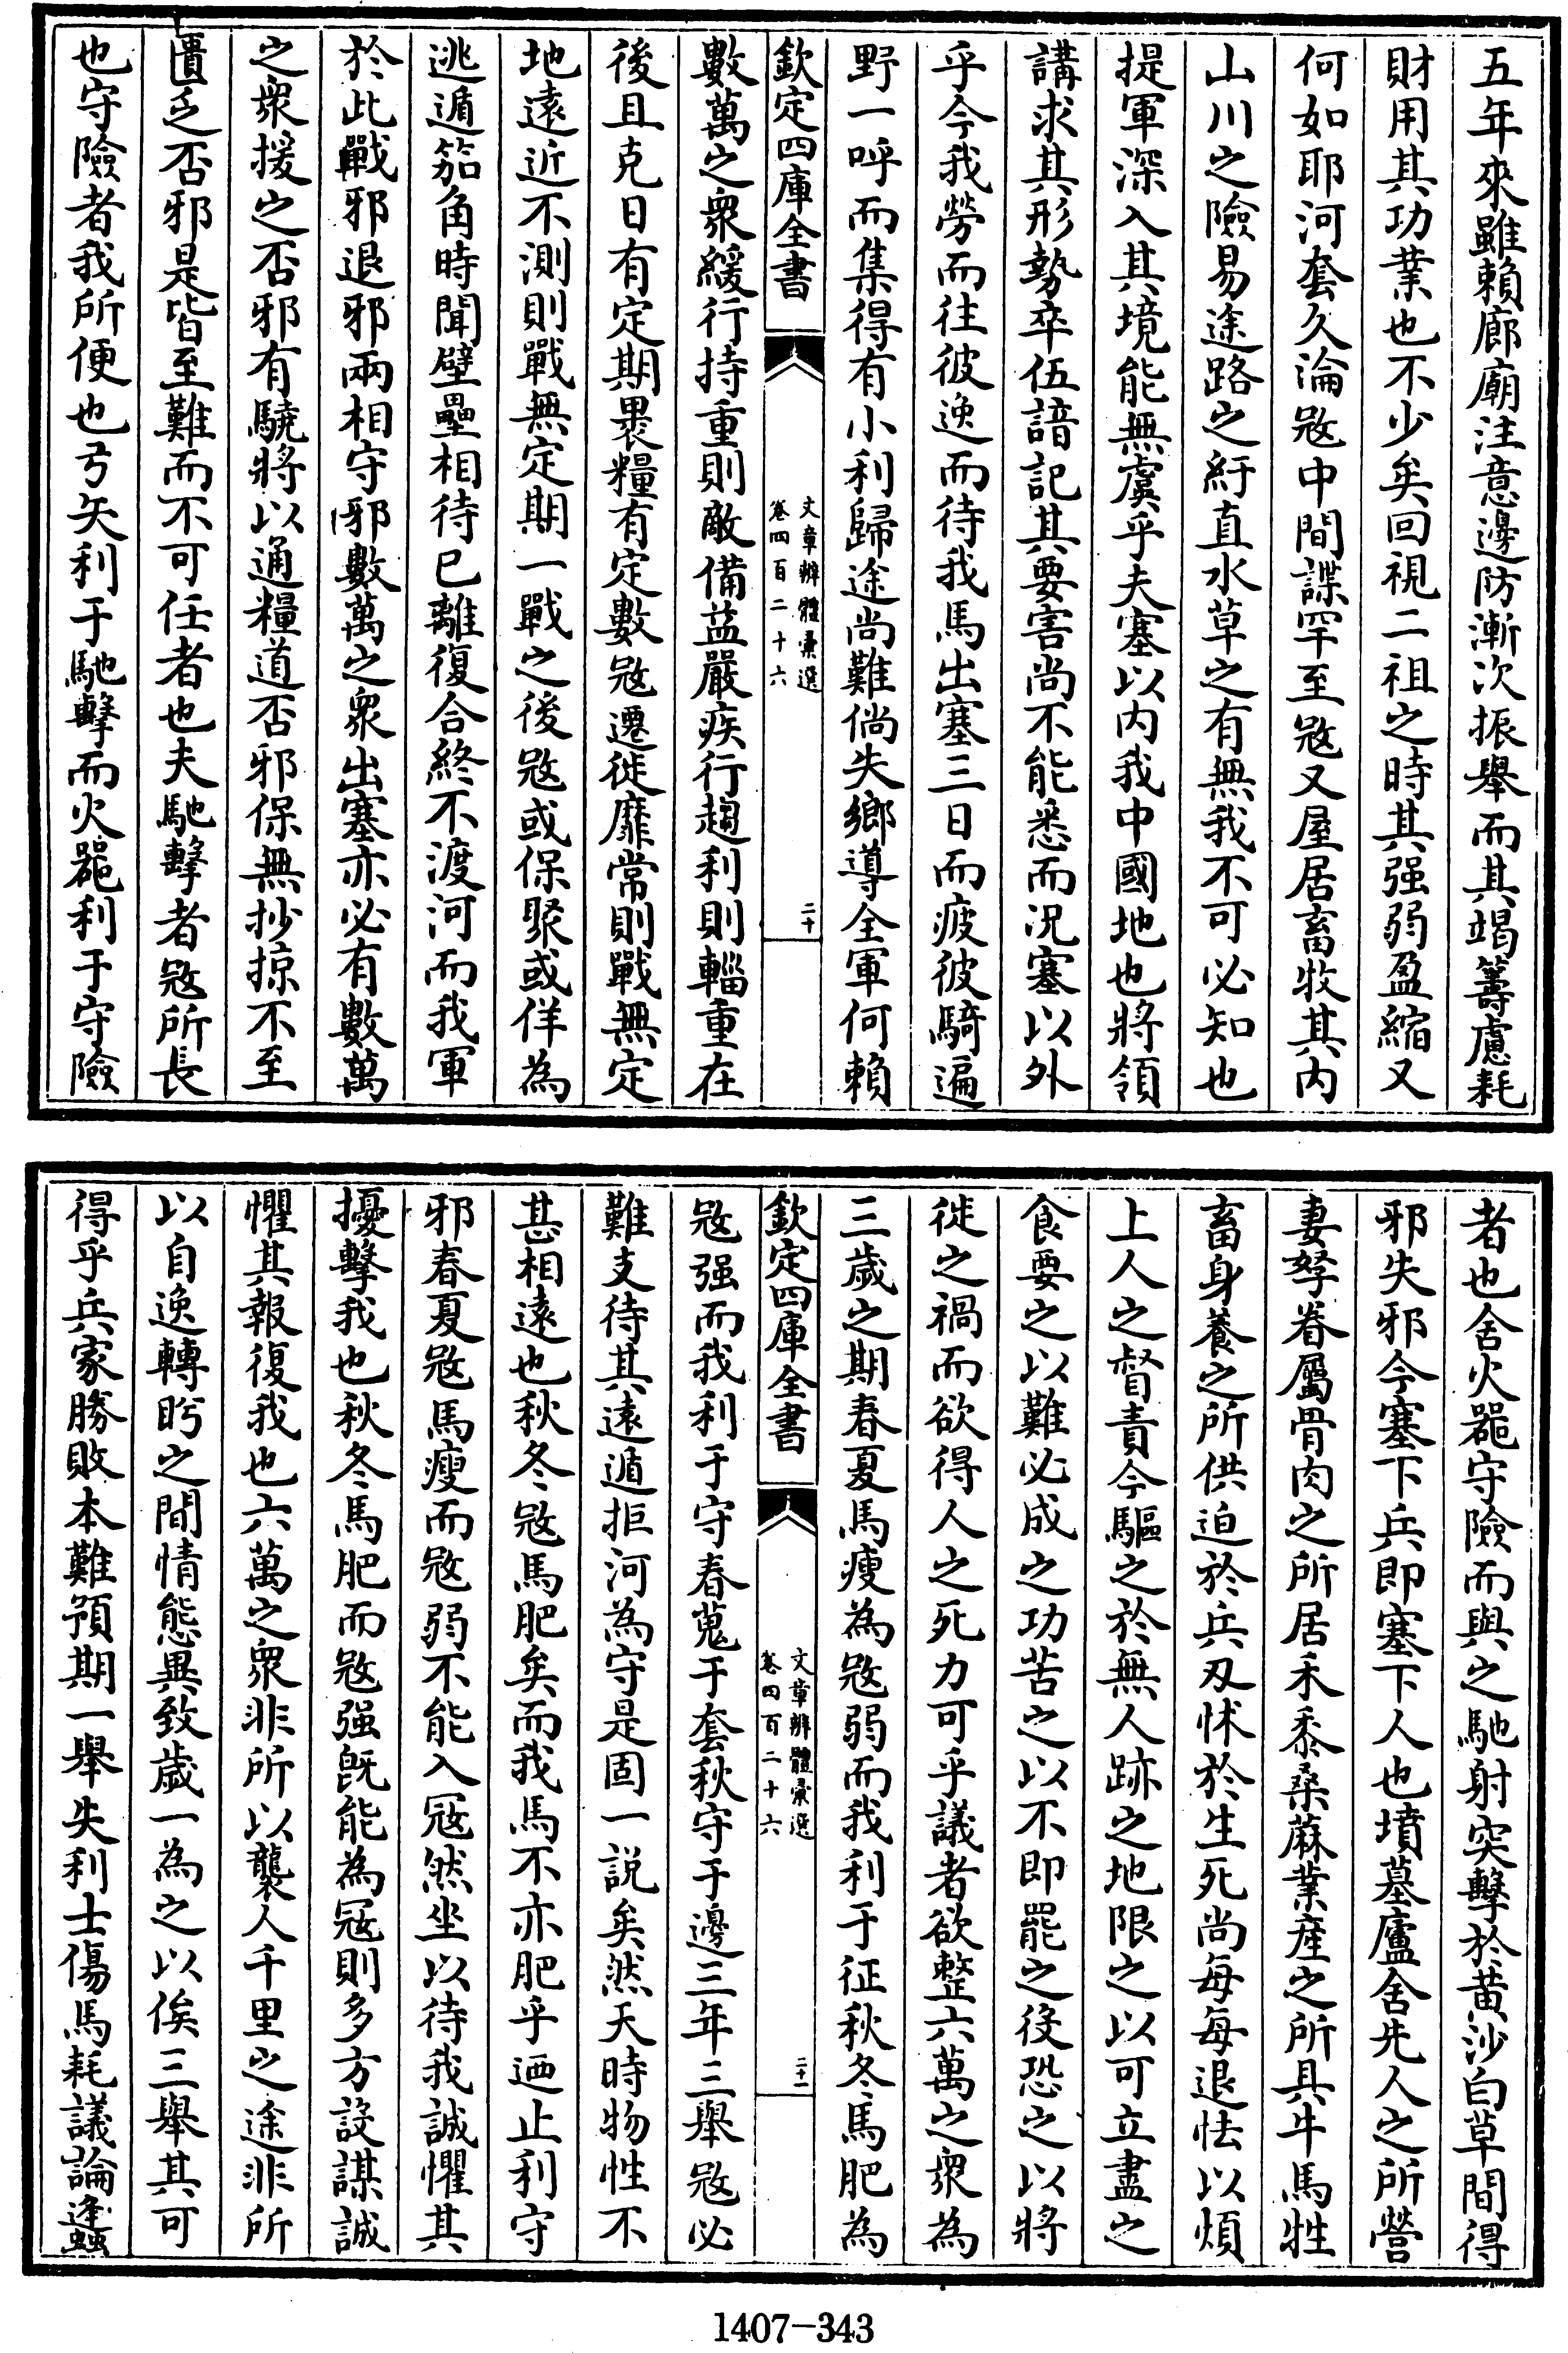 五年來雖賴廊廟注意邊防漸次振舉而其竭籌慮耗
財用其功業也不少矣回視二祖之時其强弱盈縮又
何如耶河套久淪宼中間諜罕至宼又屋居畜牧其内
山川之險易途路之紆直水草之有無我不可必知也
提軍深入其境能無虞乎夫塞以内我中國地也將領
講求其形勢卒伍諳記其要害尚不能悉而況塞以外
乎今我勞而往彼逸而待我馬出塞三日而疲彼騎遍
野一呼而集得有小利歸途尚難倘失鄉導全軍何賴
欽定四庫全書
文章辨體彚選
卷四百二十六
二十
數萬之衆緩行持重則敵備益嚴疾行趨利則輜重在
後且克日有定期裹糧有定數宼遷徙靡常則戰無定
地遠近不測則戰無定期一戰之後宼或保聚或佯為
逃遁笳角時聞壁壘相待已離復合終不渡河而我軍
於此戰邪退邪兩相守邪數萬之衆出塞亦必有數萬
之衆援之否邪有驍將以通糧道否邪保無抄掠不至
匱乏否邪是皆至難而不可任者也夫馳擊者宼所長
也守險者我所便也弓矢利于馳擊而火器利于守險
者也舍火器守險而與之馳射突擊於黄沙白草間得
邪失邪今塞下兵即塞下人也墳墓廬舍先人之所營
妻孥眷屬骨肉之所居禾黍桑蔴業産之所具牛馬牲
畜身養之所供迫於兵刃怵於生死尚每每退怯以煩
上人之督責今驅之於無人跡之地限之以可立盡之
食要之以難必成之功苦之以不即罷之後恐之以將
徙之禍而欲得人之死力可乎議者欲整六萬之衆為
三歲之期春夏馬瘦為宼弱而我利于征秋冬馬肥為
欽定四庫全書
文章辨體彚選
卷四百二十六
二十一
宼强而我利于守春蒐于套秋守于邊三年三舉宼必
難支待其遠遁拒河為守是固一説矣然天時物性不
甚相遠也秋冬宼馬肥矣而我馬不亦肥乎迺止利守
邪春夏宼馬瘦而宼弱不能入冦然坐以待我誠懼其
擾擊我也秋冬馬肥而宼强旣能為冦則多方設謀誠
懼其報復我也六萬之衆非所以襲人千里之途非所
以自逸轉盻之間情態異致歲一為之以俟三舉其可
得乎兵家勝敗本難預期一舉失利士傷馬耗議論蠭
1407-343